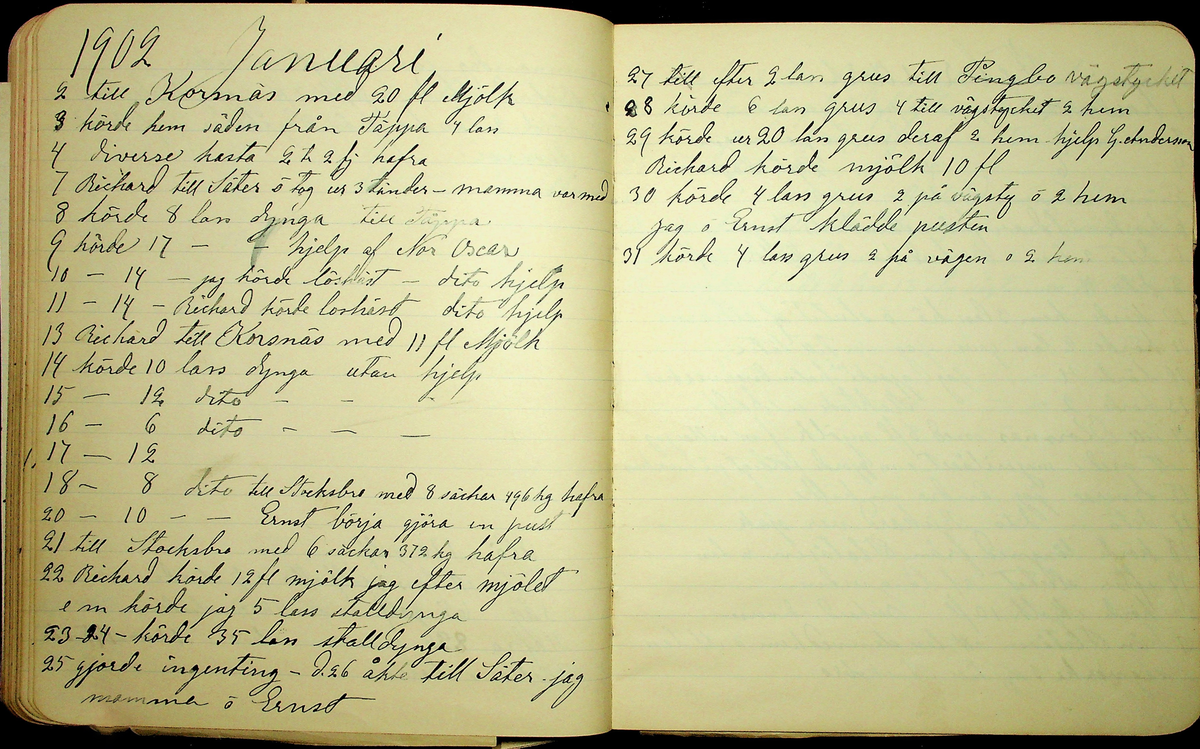 1902 Januari
2 till Korsnäs med 20 fl Mjölk
3 körde hem säden från Täppa 4 lass
4 diverse kasta 2 t 2 fj hafra
7 Richard till Säter ö tog ur 3 tänder - mamma var med
8 körde 8 lass dynga till Täppa
9 körde 17 — — hjelp af Nor Oscar
10 — 14 — jag körde löshäst — dito hjelp
11 — 14 — Richard körde löshäst dito hjelp
13 Richard till Korsnäs med 11 fl Mjölk
14 körde 10 lass dynga utan hjelp
15 — 12 dito — — -
16 — 6 dito - — —
17 — 12
18 — 8 dito till Stocksbro med 8 säckar 496 kg hafra
20 — 10 — — Ernst börja gjöra en pust
21 till Stocksbro med 6 säckar 372 kg hafra
22 Richard körde 12 fl mjölk jag efter mjölet
e m körde jag 5 lass stalldynga
23-24 - körde 35 lass stalldynga
25 gjorde ingenting - d.26 åkte till Säter jag
mamma ö Ernst
27 till efter 2 lass grus till Tingbo vägstycket
28 körde 6 lass grus 4 till vägstycket 2 hem
29 körde ur 20 lass grus deraf 2 hem hjelp G. Andersson
Richard körde mjölk 10 fl
30 körde 4 lass grus 2 på vägsty ö 2 hem
jag o Ernst klädde pusten
31 körde 4 lass grus 2 på vägen o 2 hem